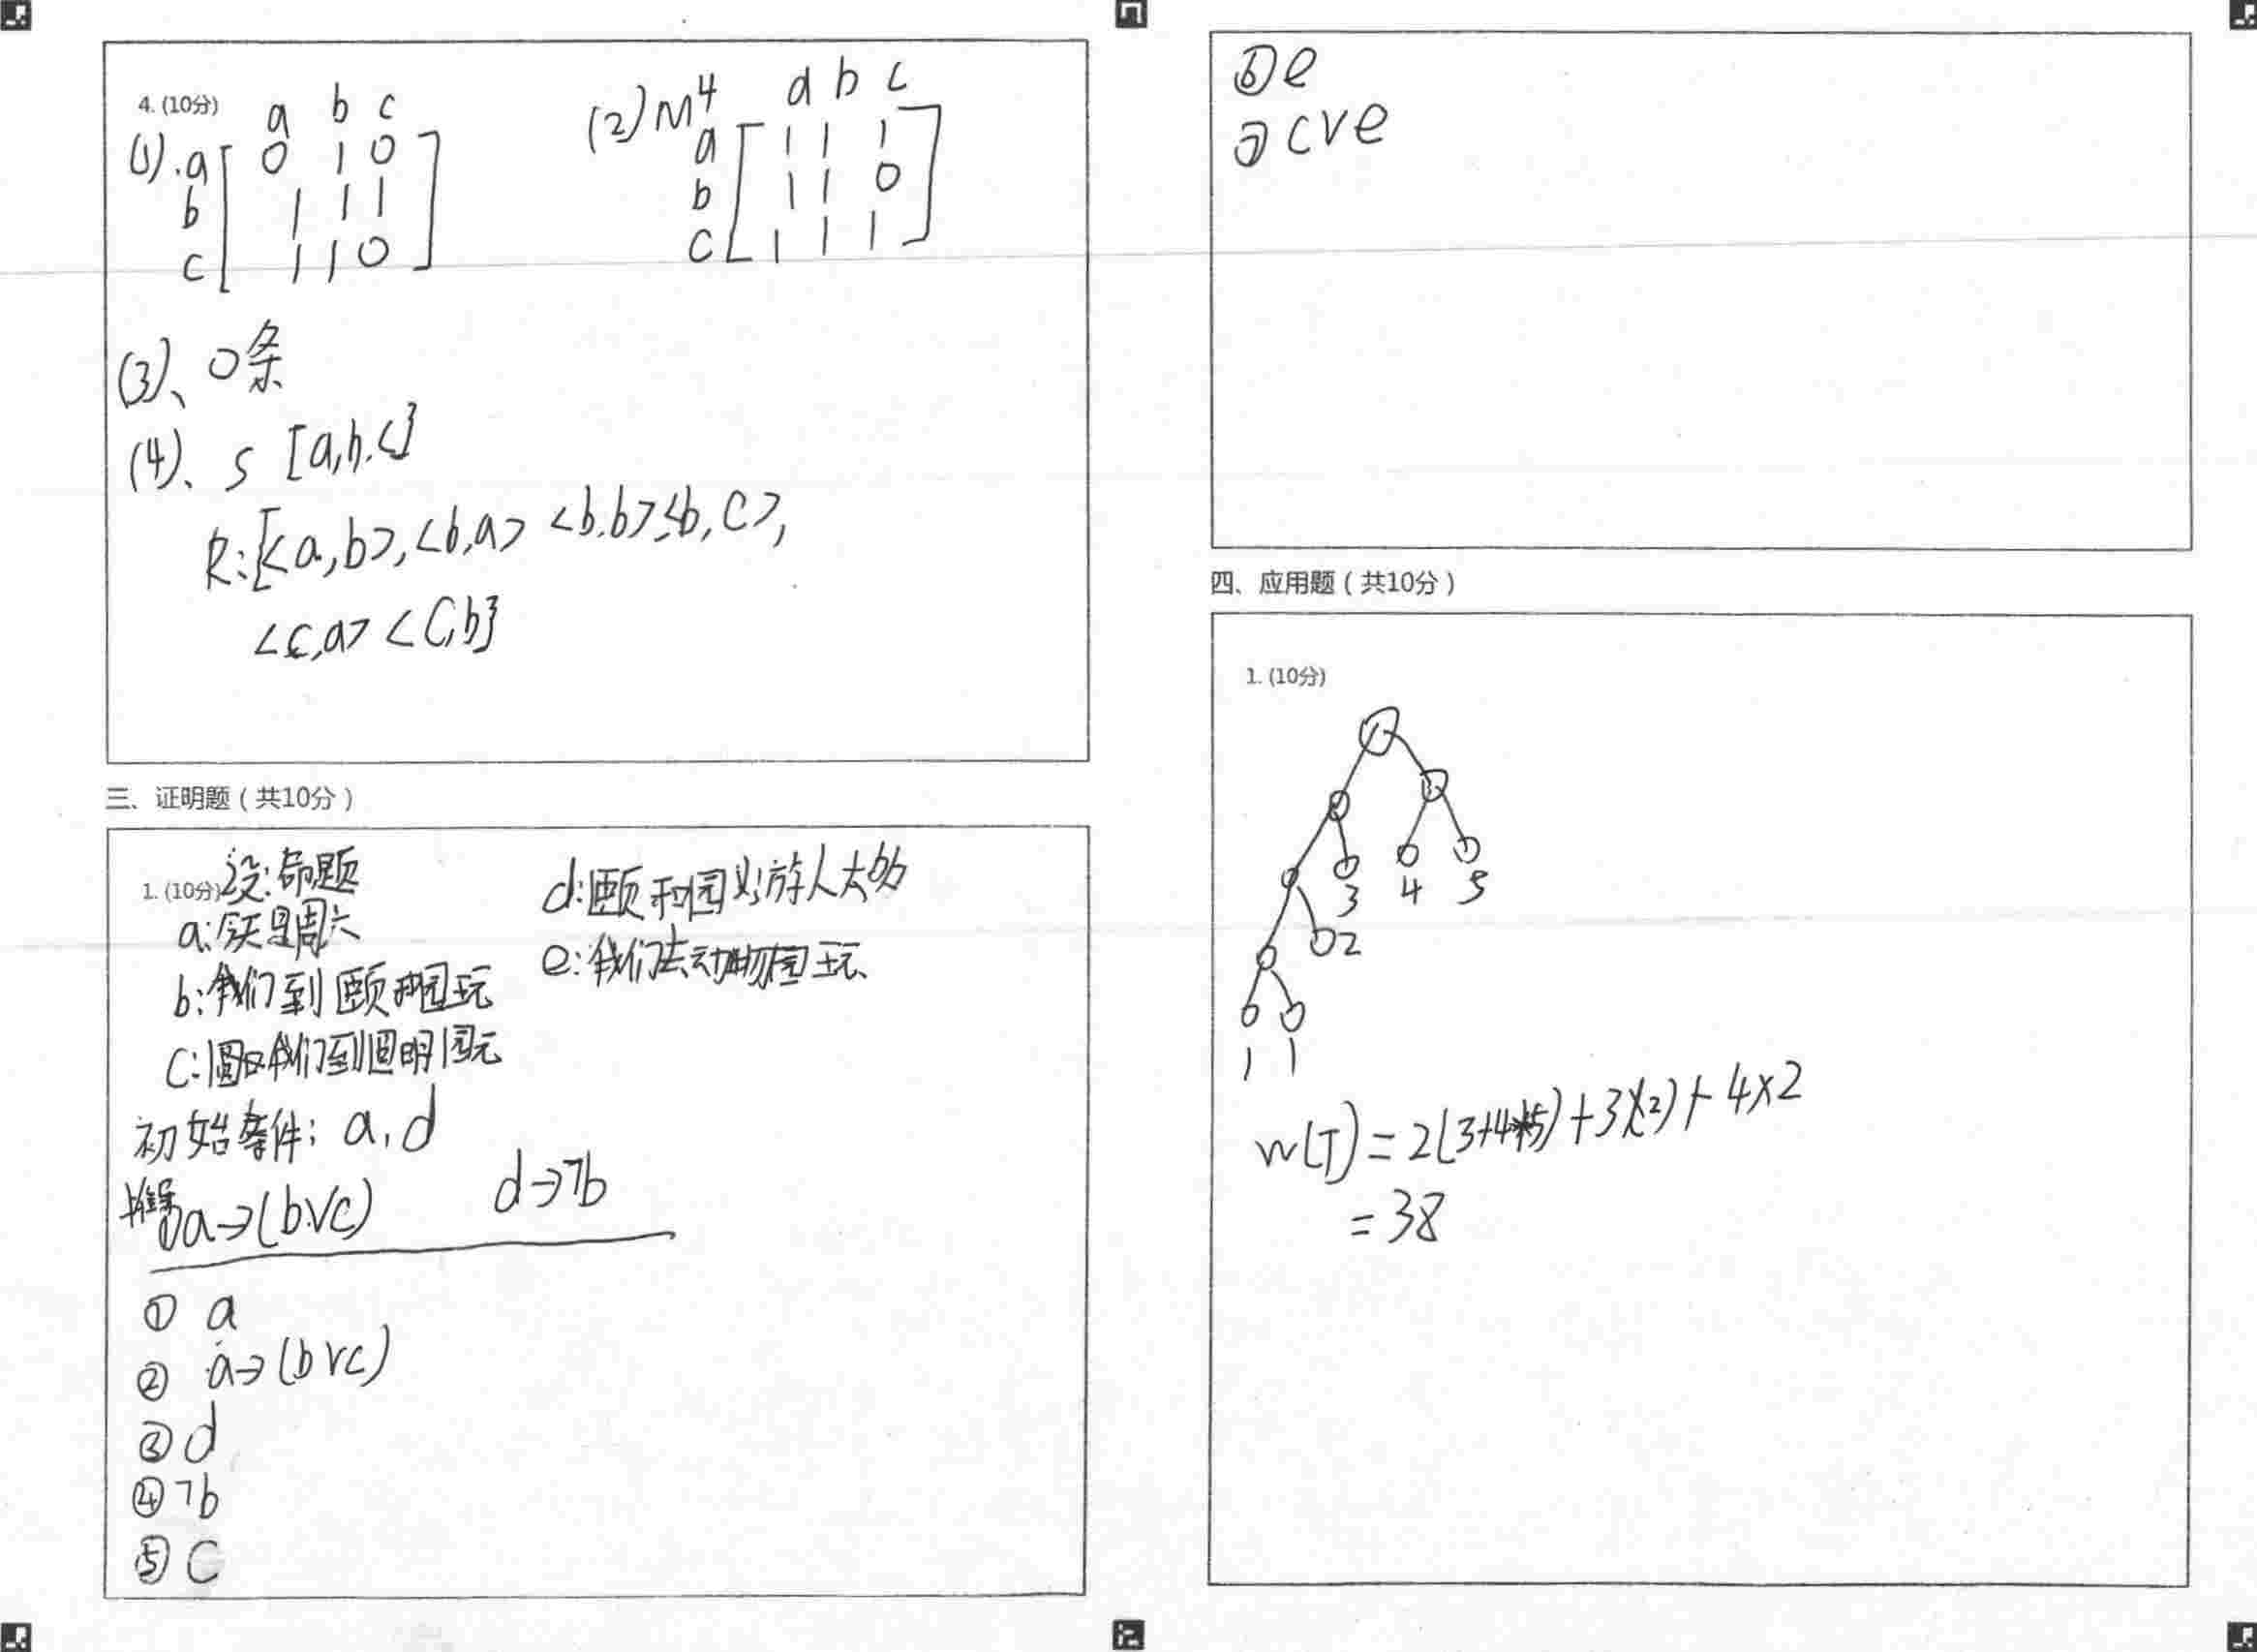 4. (10分)
a b c
(1). a 0 1 0
b 1 1 1
c 1 1 0
(2) M⁴
a b c
a 1 1 1
b 1 1 0
c 1 1 1
(3)、0条
(4)、S [a,b,c}
R:[<a,b>,<b,a> <b,b>,<b,c>,
<c,a> <c,b}
三、证明题（共10分）
1. (10分) 设:命题
a:今天是周六
b:我们到颐和园玩
c:我们到圆明园玩
d:颐和园游人太多
e:我们去动物园玩
初始条件: a, d
a→(b∨c) d→¬b
① a
② a→(b∨c)
③ d
④ ¬b
⑤ c
⑥ e
⑦ c∨e
四、应用题（共10分）
1. (10分)
3 4 5
2
1 1
W(T)=2(3+4+5)+3(2)+4×2
=38